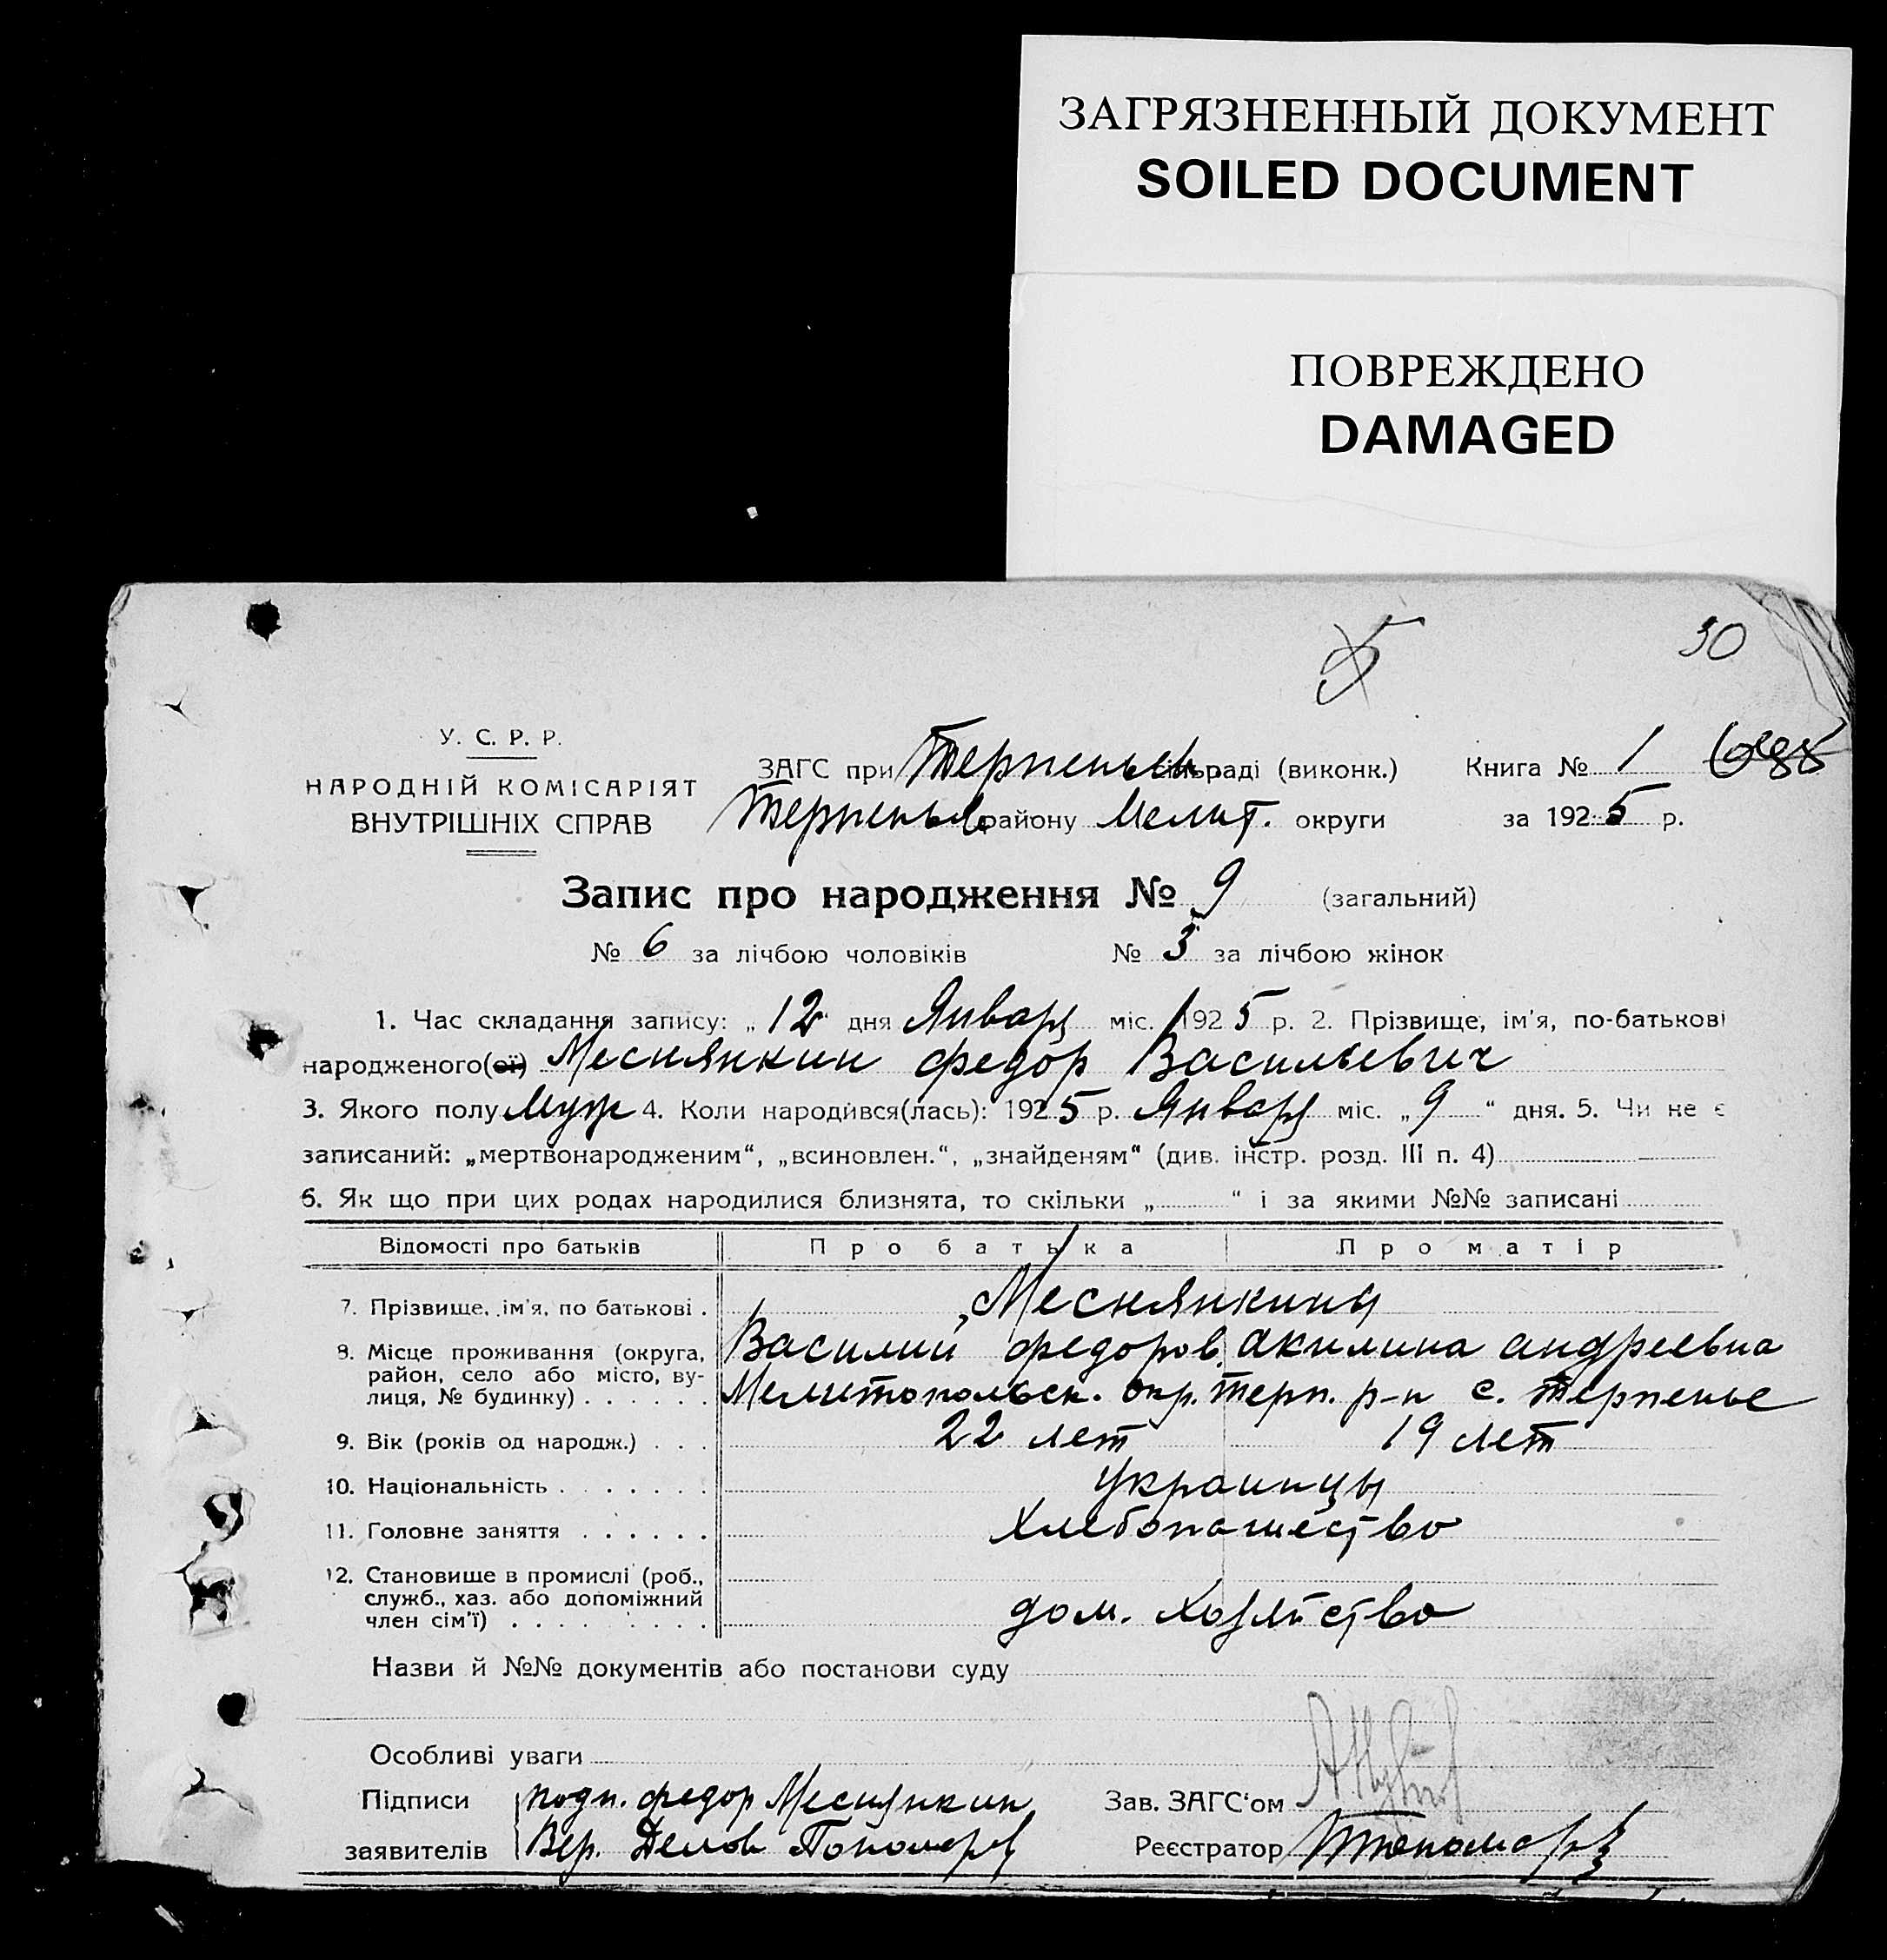 ЗАГРЯЗНЕННЫЙ ДОКУМЕНТ
SOILED DOCUMENT
ПОВРЕЖДЕНО
DAMAGED
30
У. С. Р. Р.
НАРОДНІЙ КОМІСАРІЯТ
ВНУТРІШНІХ СПРАВ
ЗАГС при Терпеньев. сільраді (виконк.) Книга № 1
Терпеньев району Мелит. округи за 1925 р.
Запис про народження № 9 (загальний)
№ 6 за лічбою чоловіків № 3 за лічбою жінок
1. Час складання запису: „12“ дня Января міс. 1925 р. 2. Прізвище, ім'я, по-батькові
народженого(ої) Меснянкин Федор Васильевич
3. Якого полу Муж 4. Коли народився(лась): 1925 р. Января міс. „9“ дня. 5. Чи не є
записаний: „мертвонародженим“, „всиновлен.“, „знайденям“ (див. інстр. розд. III п. 4)
6. Як що при цих родах народилися близнята, то скільки „ “ і за якими №№ записані
Відомості про батьків Про батька Про матір
7. Прізвище, ім'я, по батькові . Меснянкины
Василий Федоров. Акилина Андреевна
8. Місце проживання (округа, район, село або місто, ву-
лиця, № будинку) . . . . . . Мелитопольск. окр. Терп. р-н с. Терпенье
9. Вік (років од народж.) . . . 22 лет 19 лет
10. Національність . . . . . . . украинцы
11. Головне заняття . . . . . . Хлебопашество
12. Становище в промислі (роб.,
служб., хаз. або допоміжний
член сім'ї) . . . . . . . . . дом. хозяйство
Назви й №№ документів або постанови суду
Особливі уваги
Підписи подп. Федор Меснянкин Зав. ЗАГС'ом
заявителів Вер. Делов Пономарев Реєстратор Пономарев